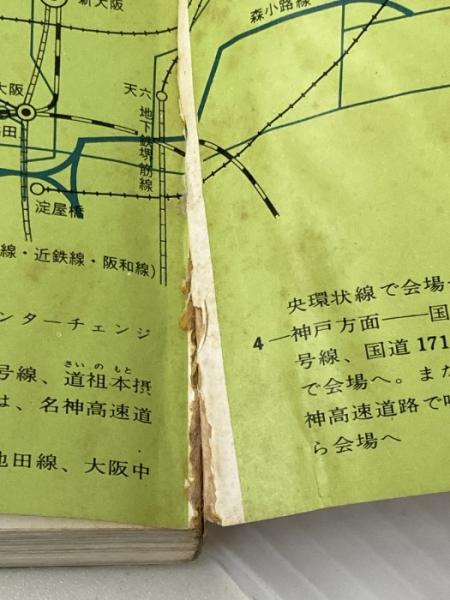 新大阪
大阪
田
天六
地下鉄堺筋線
淀屋橋
線・近鉄線・阪和線)
ンターチェンジ
さいのもと
号線、道祖本摂
は、名神高速道
池田線、大阪中
森小路線
央環状線で会場
4—神戸方面——国
号線、国道171
で会場へ。また
神高速道路で
ら会場へ